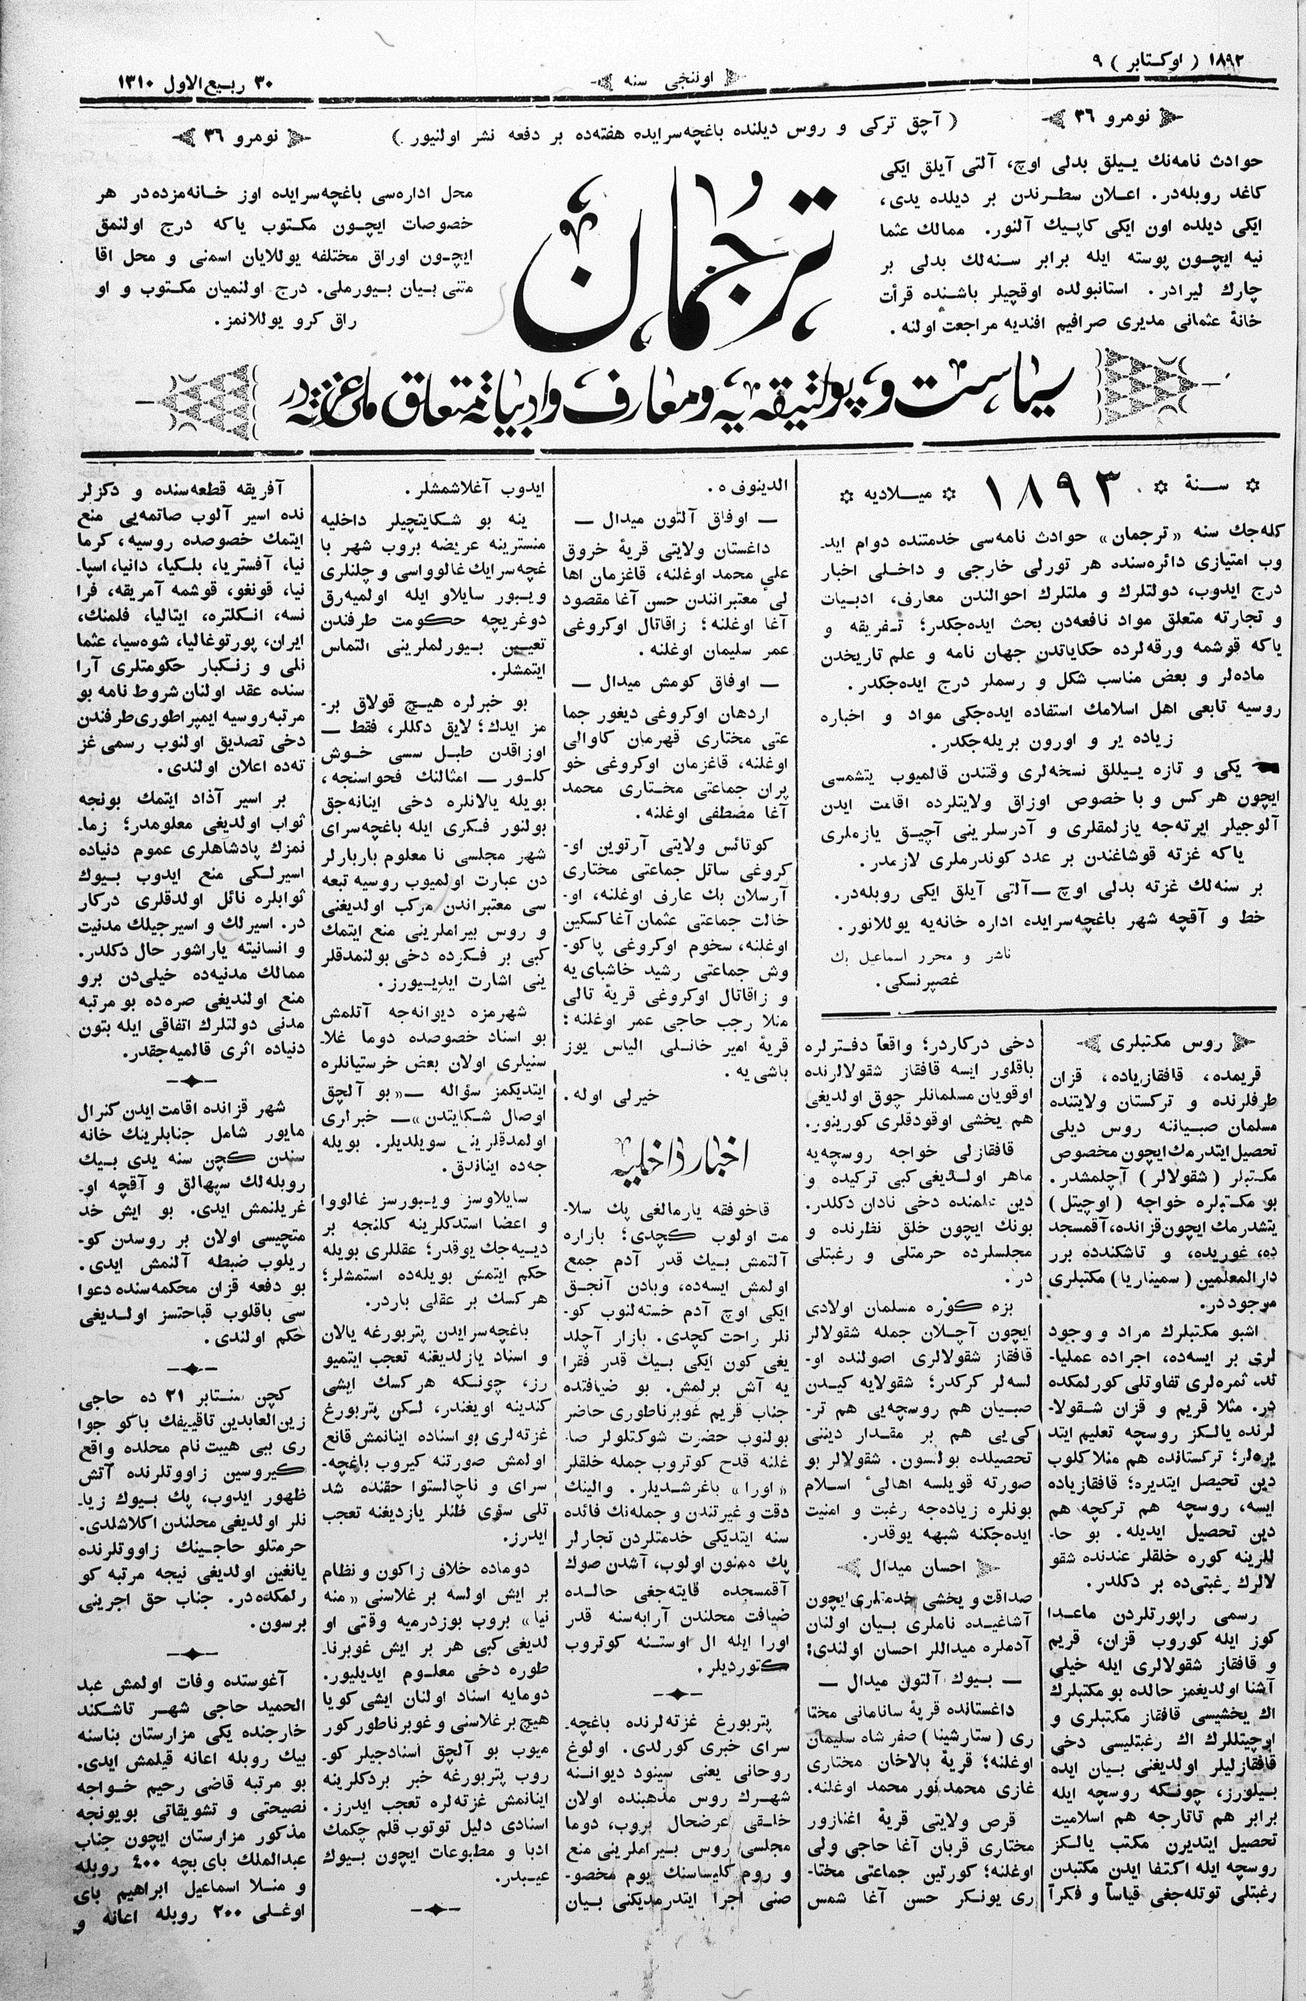 ١٨٩٢ ( اوكتابر ) ٩
اوننجى سنه
٣٠ ربيع الاول ١٣١٠
نومرو ٣٦
( آچق تركى و روس ديلنده باغچه‌سرايده هفته‌ده بر دفعه نشر اولنيور . )
نومرو ٣٦
حوادث نامه‌نك ييلق بدلى اوچ، آلتى آيلق ايكى
كاغد روبله‌در. اعلان سطرندن بر ديلده يدى،
ايكى ديلده اون ايكى كاپيك آلنور. ممالك عثما
نيه ايچون پوسته ايله برابر سنه‌لك بدلى بر
چارك ليرادر. استانبولده اوقچيلر باشنده قرأت
خانهٔ عثمانى مديرى صرافيم افنديه مراجعت اولنه .
ترجمان
محل اداره‌سى باغچه‌سرايده اوز خانه‌مزده‌در هر
خصوصات ايچون مكتوب ياكه درج اولنمق
ايچون اوراق مختلفه يوللايان اسمنى و محل اقا
متنى بيان بيورملى. درج اولنميان مكتوب و او
راق كرو يوللانمز .
سياست و پولتيقه‌يه و معارف و ادبياته متعلق ملى غزته‌در
سنهٔ ١٨٩٣ ميلاديه
كله‌جك سنه «ترجمان» حوادث نامه‌سى خدمتنده دوام ايد
وب امتيازى دائره‌سنده هر تورلى خارجى و داخلى اخبار
درج ايدوب، دولتلرك و ملتلرك احوالندن معارف، ادبيات
و تجارته متعلق مواد نافعه‌دن بحث ايده‌جكدر؛ تفريقه و
ياكه قوشمه ورقه‌لرده حكاياتدن جهان نامه و علم تاريخدن
ماده‌لر و بعض مناسب شكل و رسملر درج ايده‌جكدر .
روسيه تابعى اهل اسلامك استفاده ايده‌جكى مواد و اخباره
زياده ير و اورون بريله‌جكدر .
يكى و تازه ييللق نسخه‌لرى وقتندن قالميوب يتشمسى
ايچون هركس و با خصوص اوزاق ولايتلرده اقامت ايدن
آلوجيلر ايرته‌جه يازلمقلرى و آدرسلرينى آچيق يازملرى
ياكه غزته قوشاغندن بر عدد كوندرملرى لازمدر .
بر سنه‌لك غزته بدلى اوچ — آلتى آيلق ايكى روبله‌در.
خط و آقچه شهر باغچه‌سرايده اداره خانه‌يه يوللانور .
ناشر و محرر اسماعيل بك
غصپرنسكى .
روس مكتبلرى
قريمده، قافقازياده، قزان
طرفلرنده و تركستان ولايتنده
مسلمان صبياننه روس ديلى
تحصيل ايتدرمك ايچون مخصوص
مكتبلر ( شقولالر ) آچلمشدر .
بو مكتبلره خواجه ( اوچيتل )
يتشدرمك ايچون قزانده، آقمسجد
ده، غوريده، و تاشكندده برر
دارالمعلمين ( سميناريا ) مكتبلرى
موجوددر.
اشبو مكتبلرك مراد و وجود
لرى بر ايسه‌ده، اجراده عمليا
تده ثمره‌لرى تفاوتلى كورلمكده
در. مثلا قريم و قزان شقولا
لرنده يالكز روسچه تعليم ايتد
يره‌لر؛ تركستانده هم منلا كلوب
دين تحيصل ايتديره؛ قافقازياده
ايسه، روسچه هم تركچه هم
دين تحصيل ايديله. بو حا
للرينه كوره خلقلر عندنده شقو
لالرك رغبتى‌ده بر دكلدر.
رسمى راپورتلردن ماعدا
كوز ايله كوروب قزان، قريم
و قافقاز شقولالرى ايله خيلى
آشنا اولديغمز حالده بو مكتبلرك
اك يخشيسى قافقاز مكتبلرى و
اوچيتللرك اك رغبتليسى دخى
قافقازليلر اولديغنى بيان ايده
بيلورز، چونكه روسچه ايله
برابر هم تاتارجه هم اسلاميت
تحصيل ايتديرن مكتب يالكز
روسچه ايله اكتفا ايدن مكتبدن
رغبتلى توتله‌جغى قياساً و فكراً
دخى دركاردر؛ واقعاً دفترلره
باقلور ايسه قافقاز شقولالرنده
اوقويان مسلمانلر چوق اولديغى
هم يخشى اوقودقلرى كورينور.
قافقازلى خواجه روسچه‌يه
ماهر اولديغى كبى تركيده و
دين علمنده دخى نادان دكلدر.
بونك ايچون خلق نظرنده و
مجلسلرده حرمتلى و رغبتلى
در .
بزه كوره مسلمان اولادى
ايچون آچلان جمله شقولالر
قافقاز شقولالرى اصولنده او
لسه‌لر كركدر؛ شقولايه كيدن
صبيان هم روسچه‌يى هم تر
كى‌يى هم بر مقدار دينى
تحصيلده بولسون. شقولالر بو
صورته قويلسه اهالىٔ اسلام
بونلره زياده‌جه رغبت و امنيت
ايده‌جكنه شبهه يوقدر.
احسان ميدال
صداقت و يخشى خدمتلرى ايچون
آشاغيده ناملرى بيان اولنان
آدملره ميداللر احسان اولندى:
— بيوك آلتون ميدال —
داغستانده قريهٔ سانامانى مختا
رى ( ستارشينا ) صفر شاه سليمان
اوغلنه؛ قريهٔ بالاخان مختارى
غازى محمد نور محمد اوغلنه.
قرص ولايتى قريهٔ اغنازور
مختارى قربان آغا حاجى ولى
اوغلنه؛ كورتين جماعتى مختا
رى يونكر حسن آغا شمس
الدينوفه .
— اوفاق آلتون ميدال —
داغستان ولايتى قريهٔ خروق
على محمد اوغلنه، قاغزمان اها
لى معتبرانندن حسن آغا مقصود
آغا اوغلنه؛ زاقاتال اوكروغى
عمر سليمان اوغلنه .
— اوفاق كومش ميدال —
اردهان اوكروغى ديغور جما
عتى مختارى قهرمان كاوالى
اوغلنه، قاغزمان اوكروغى خو
پران جماعتى مختارى محمد
آغا مصطفى اوغلنه .
كوتائس ولايتى آرتوين او
كروغى ساتل جماعتى مختارى
آرسلان بك عارف اوغلنه، او
خالت جماعتى عثمان آغا كسكين
اوغلنه، سخوم اوكروغى پاكو
وش جماعتى رشيد خاشباى‌يه
و زاقاتال اوكروغى قريهٔ تالى
منلا رجب حاجى عمر اوغلنه؛
قريهٔ امير خانلى الياس يوز
باشى‌يه .
خيرلى اوله .
اخبار داخليه
قاخوفقه يارمالغى پك سلا
مت اولوب كچدى؛ بازاره
آلتمش بيك قدر آدم جمع
اولمش ايسه‌ده، وبادن آنجق
ايكى اوچ آدم خسته‌لنوب كو
نلر راحت كچدى. بازار آچلد
يغى كون ايكى بيك قدر فقرا
يه آش برلمش. بو ضيافتده
جناب قريم غوبرناطورى حاضر
بولنوب حضرت شوكتلولر صا
غلنه قدح كوتروب جمله خلقلر
«اورا» باغرشديلر. والينك
دقت و غيرتندن و جمله‌نك فائده
سنه ايتديكى خدمتلردن تجارلر
پك ممنون اولوب، آشدن صوك
آقمسجده قايته‌جغى حالده
ضيافت محلندن آرابه‌سنه قدر
اورا ايله ال اوستنه كوتروب
كتورديلر .
پتربورغ غزته‌لرنده باغچه
سراى خبرى كورلدى. اولوغ
روحانى يعنى سينود ديواننه
شهرك روس مذهبنده اولان
خلقى عرضحال بروب، دوما
مجلسى روس بيراملرينى منع
و روم كليساسنك يوم مخصو
صنى اجرا ايتدرمديكنى بيان
ايدوب آغلاشمشلر .
ينه بو شكايتچيلر داخليه
منسترينه عريضه بروب شهر با
غچه‌سرايك غالوواسى و چلنلرى
ويبور سايلاو ايله اولميه‌رق
دوغريچه حكومت طرفندن
تعيين بيورلملرينى التماس
ايتمشلر.
بو خبرلره هيچ قولاق بر
مز ايدك؛ لايق دكللر، فقط —
اوزاقدن طبل سسى خوش
كلور — امثالنك فحواسنجه،
بويله يالانلره دخى اينانه‌جق
بولنور فكرى ايله باغچه‌سراى
شهر مجلسى نا معلوم باربارلر
دن عبارت اولميوب روسيه تبعه
سى معتبراندن مركب اولديغنى
و روس بيراملرينى منع ايتمك
كبى بر فكرده دخى بولنمدقلر
ينى اشارت ايديـيورز.
شهرمزه ديوانه‌جه آتلمش
بو اسناد خصوصده دوما غلا
سنيلرى اولان بعض خرستيانلره
ايتديكمز سؤاله — «بو آلچق
اوصال شكايتدن» — خبرلرى
اولمدقلرينى سويلديلر. بويله
جه‌ده ايناندق.
سايلاوسز ويبورسز غالووا
و اعضا استدكلرينه كلنجه بر
ديـيه‌جك يوقدر؛ عقللرى بويله
حكم ايتمش بويله‌ده استمشلر؛
هركسك بر عقلى باردر.
باغچه‌سرايدن پتربورغه يالان
و اسناد يازلديغنه تعجب ايتميو
رز، چونكه هركسك ايشى
كندينه اويغندر، لكن پتربورغ
غزته‌لرى بو اسناده اينانمش قانع
اولمش صورتنه كيروب باغچه
سراى و ناچالستوا حقنده شد
تلى سؤى ظنلر يازديغنه تعجب
ايدرز.
دوماده خلاف زاكون و نظام
بر ايش اولسه بر غلاسنى «منه
نيا» بروب بوزدرميه وقتى او
لديغى كبى هر بر ايش غوبرنا
طوره دخى معلوم ايديليور.
دومايه اسناد اولنان ايشى كويا
هيچ بر غلاسنى و غوبرناطور كور
ميوب بو آلچق اسنادجيلر كو
روب پتربورغه خبر بردكلرينه
اينانمش غزته‌لره تعجب ايدرز.
اسنادى دليل توتوب قلم چكمك
ادبا و مطبوعات ايچون بيوك
عيبدر.
آفريقه قطعه‌سنده و دكزلر
نده اسير آلوب صاتمه‌يى منع
ايتمك خصوصده روسيه، كرما
نيا، آفستريا، بلكيا، دانيا، اسپا
نيا، قونغو، قوشمه آمريقه، فرا
نسه، انكلتره، ايتاليا، فلمنك،
ايران، پورتوغاليا، شوه‌سيا، عثما
نلى و زنكبار حكومتلرى آرا
سنده عقد اولنان شروط نامه بو
مرتبه روسيه ايمپراطورى طرفندن
دخى تصديق اولنوب رسمى غز
ته‌ده اعلان اولندى.
بر اسير آذاد ايتمك بونجه
ثواب اولديغى معلومدر؛ زما
نمزك پادشاهلرى عموم دنياده
اسيرلكى منع ايدوب بيوك
ثوابلره نائل اولدقلرى دركار
در. اسيرلك و اسيرجيلك مدنيت
و انسانيته ياراشور حال دكلدر.
ممالك مدنيه‌ده خيلى‌دن برو
منع اولنديغى صره‌ده بو مرتبه
مدنى دولتلرك اتفاقى ايله بتون
دنياده اثرى قالميه‌جقدر.
شهر قزانده اقامت ايدن كنرال
مايور شامل جنابلرينك خانه
سندن كچن سنه يدى بيك
روبله‌لك سپهالق و آقچه او
غريلنمش ايدى. بو ايش خد
متچيسى اولان بر روسدن كو
ريلوب ضبطه آلنمش ايدى.
بو دفعه قزان محكمه‌سنده دعوا
سى باقلوب قباحتسز اولديغى
حكم اولندى .
كچن سنتابر ٢١ ده حاجى
زين‌العابدين تاقيفك باكو جوا
رى بى‌بى هيبت نام محلده واقع
كيروسين زاووتلرنده آتش
ظهور ايدوب، پك بيوك زيا
نلر اولديغى محلندن اكلاشلدى.
حرمتلو حاجينك زاووتلرنده
يانغين اولديغى نيجه مرتبه كو
رلمكده‌در. جناب حق اجرينى
برسون.
آغوستده وفات اولمش عبد
الحميد حاجى شهر تاشكند
خارجنده يكى مزارستان بناسنه
بيك روبله اعانه قيلمش ايدى.
بو مرتبه قاضى رحيم خواجه
نصيحتى و تشويقاتى بويونجه
مذكور مزارستان ايچون جناب
عبدالملك باى بچه ٤٠٠ روبله
و منلا اسماعيل ابراهيم باى
اوغلى ٢٠٠ روبله اعانه و